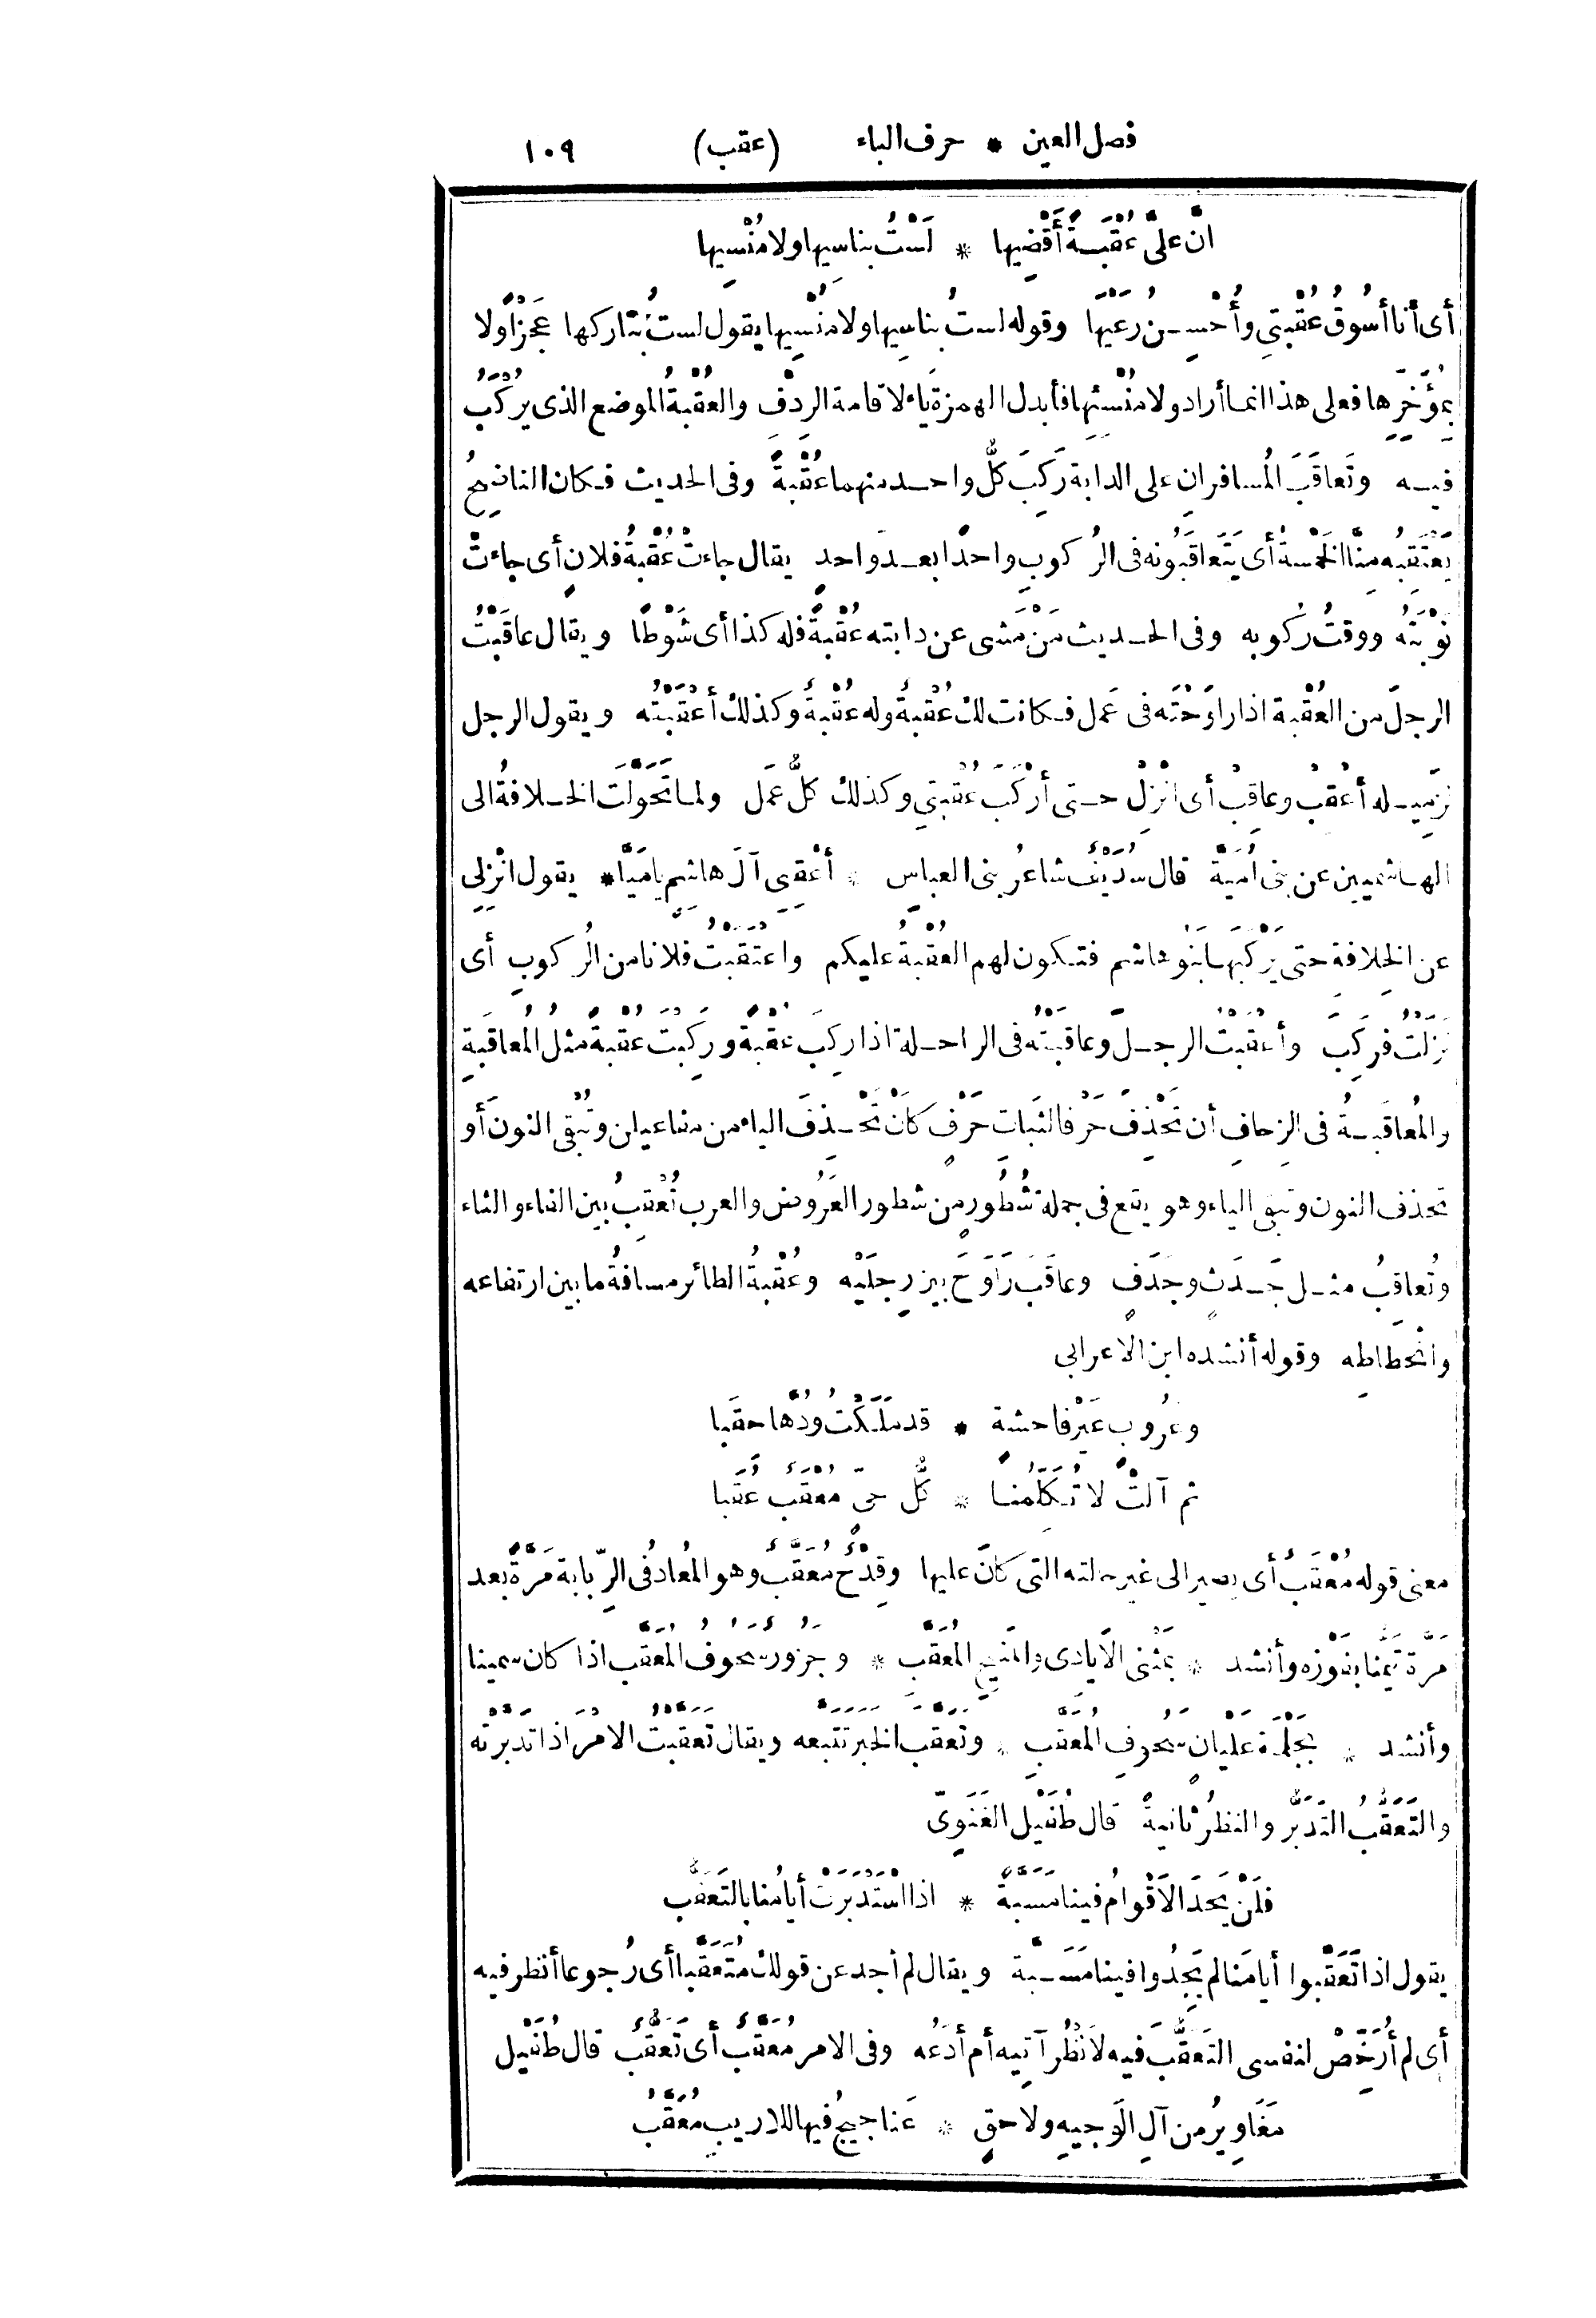 فصل العين * حرف الباء (عقب) ١٠٩
انّ علىَّ عُقْبَةً أَقْضِيها * لَسْتُ بناسِيها ولا مُنْسِيها
أى أنا أسُوقُ عُقْبتِى وأُحْسِنُ رَعْيَها وقوله لستُ بناسِيها ولا مُنْسِيها يقول لستُ بتاركها عَجْزًا ولا
بِمُؤَخِّرِها فعلى هذا انما أراد ولا مُنْسِئِها فأبدل الهمزة ياءً لاقامة الرِدْفِ والعُقْبةُ الموضع الذى يُرْكَبُ
فيه وتَعاقَبَ المُسافرانِ على الدابة رَكِبَ كلُّ واحد منهما عُقْبةً وفى الحديث فكان الناضِحُ
يَعْتَقِبُه مِنَّا الخَمْسةُ أى يَتَعاقَبُونه فى الرُكوبِ واحدًا بعدَ واحدٍ يقال جاءتْ عُقْبةُ فلانٍ أى جاءتْ
نَوْبَتُه ووقتُ رُكُوبه وفى الحديث مَنْ مَشى عن دابته عُقْبةً فله كذا أى شَوْطًا ويقال عاقَبْتُ
الرجلَ من العُقْبة اذا راوَحْتَه فى عَمَل فكانت لك عُقْبةٌ وله عُقْبةٌ وكذلك أعْقَبْتُه ويقول الرجل
لزَمِيله أعْقِبْ وعاقِبْ أى انْزِلْ حتى أرْكَبَ عُقْبتِى وكذلك كلُّ عَمَل ولما تَحَوَّلَت الخلافةُ الى
الهاشميين عن بنى أُمَيَّةَ قال سُدَيْفٌ شاعرُ بنى العباسِ * أعْقِبِى آلَ هاشِمٍ يامَيَّا * يقول انْزِلِى
عن الخِلافةِ حتى يَرْكَبَها بَنُو هاشم فتكون لهم العُقْبةُ عليكم واعْتَقَبْتُ فلانا من الرُكوبِ أى
نَزَلْتُ فرَكِبَ وأعْقَبْتُ الرجلَ وعاقَبْتُه فى الراحلة اذا رَكِبَ عُقْبةً ورَكِبْتَ عُقْبةً مثلُ المُعاقَبةِ
والمُعاقَبةُ فى الزِحافِ أن تَحْذِفَ حَرْفا لثَباتِ حَرْفٍ كأنْ تَحْذِفَ الياء من مفاعيلن وتُبْقِىَ النونَ أو
تحذف النون وتبقى الياء وهو يقع فى جملة شُطُورٍ من شطور العَرُوض والعرب تُعْقِبُ بين الفاء والثاء
وتُعاقِبُ مثل جَدَثٍ وجَدَفٍ وعاقَبَ رَاوَحَ بين رِجلَيْه وعُقْبةُ الطائر مسافةُ ما بين ارتفاعه
وانْحِطاطِه وقوله أنشده ابن الاعرابى
وعَرُوبٍ غَيْرِ فاحشة * قد مَلَكْتُ وُدَّها حِقَبا
ثم آلتْ لا تُكَلِّمُنا * كلُّ حىٍّ مُعْقَبٌ عُقَبا
معنى قوله مُعْقَبٌ أى يصير الى غير حالته التى كانَ عليها وقِدْحٌ مُعَقَّبٌ وهو المُعادُ فى الرِّبابة مَرَّةً بعد
مَرَّة تَيَمُّنا بفَوْزِه وأنشد * بمَثْنى الاَيادِى والمَنِيحِ المُعَقَّبِ * وجَزُورٌ سَحُوفُ المُعَقَّبِ اذا كان سمينا
وأنشد * بجَلْمة عَلْيانٍ سَحُوفِ المُعَقَّبِ * وتَعَقَّبَ الخبرَ تَتَبَّعه ويقال تَعَقَّبْتُ الامْرَ اذا تَدَبَّرْته
والتَعَقُّبُ التَدَبُّرُ والنظرُ ثانيةً قال طُفَيْل الغَنَوِىّ
فلَنْ يَجِدَ الاَقْوامُ فينا مَسَبَّةً * اذا اسْتَدْبَرَتْ أيامُنا بالتَعَقُّب
يقول اذا تَعَقَّبوا أيامَنا لم يَجِدُوا فينا مَسَبَّة ويقال لم أجد عن قولك مُتَعَقَّبا أى رُجوعا أنظر فيه
أى لم أُرَخِّصْ لنفسى التَعَقُّبَ فيه لاَنْظُرَ آتِيه أم أدَعُه وفى الامر مُعَقَّبٌ أى تَعَقُّبٌ قال طُفَيْل
مَغَاوِيرُ من آلِ الوَجِيهِ ولاحقٍ * عَناجيجُ فيها للاريبِ مُعَقَّبُ